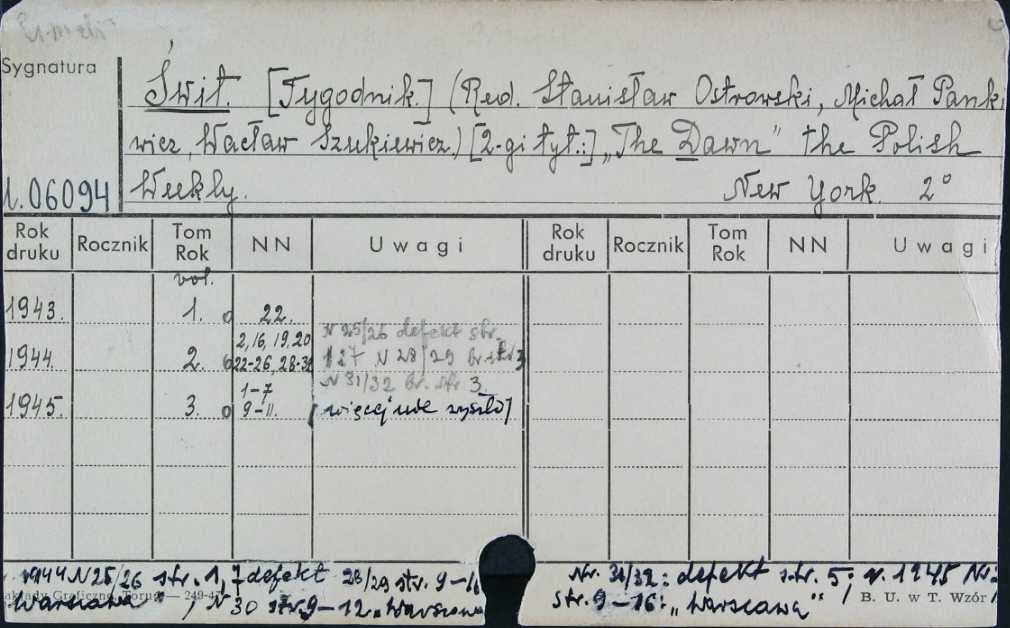 Sygnatura
Świt. [Tygodnik.] (Red. Stanisław Ostrowski, Michał Pank
wicz, Wacław Szukiewicz.) [2-gi tyt.:] „The Dawn" the Polish
06094 Weekly. New York. 2°
Rok druku Rocznik Tom Rok NN Uwagi Rok druku Rocznik Tom Rok NN Uwagi
vol.
1943. 1. 22.
N 25/26 defekt str.
2, 16, 19, 20
1944. 2. 22-26, 28- 1 i 7 N 28/29 br. str 3
N 31/32 br. str. 3.
1-7
1945. 3. 9-11. [więcej nie wyszło]
1944 N 25/26 str. 1, 7 defekt 28/29 str. 9-16
Nr. 31/32: defekt str. 5; r. 1945 Nr:
Warszawa", N 30 str. 9-12 „Warszawa
str. 9-16: „Warszawa"
Zakłady Graficzne, Toruń — 249-47
B. U. w T. Wzór